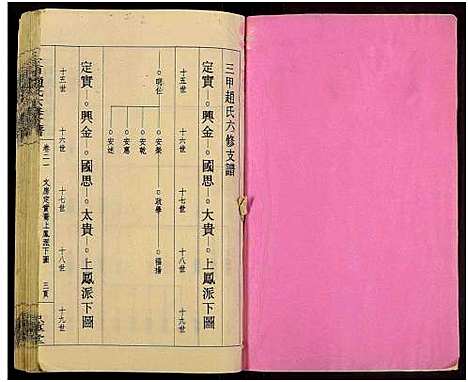 三甲趙氏六修支譜
定實—○興金—○國思—○大貴—○上鳳派下圖
十五世 十六世 十七世 十八世 十九世
○明仕 ○安榮 ○政學 ○福揚
○安乾
○安惠
○安述
定實—○興金—○國思—○太貴—○上鳳派下圖
十五世 十六世 十七世 十八世 十九世
卷二一 文房定實裔上鳳派下圖 三頁